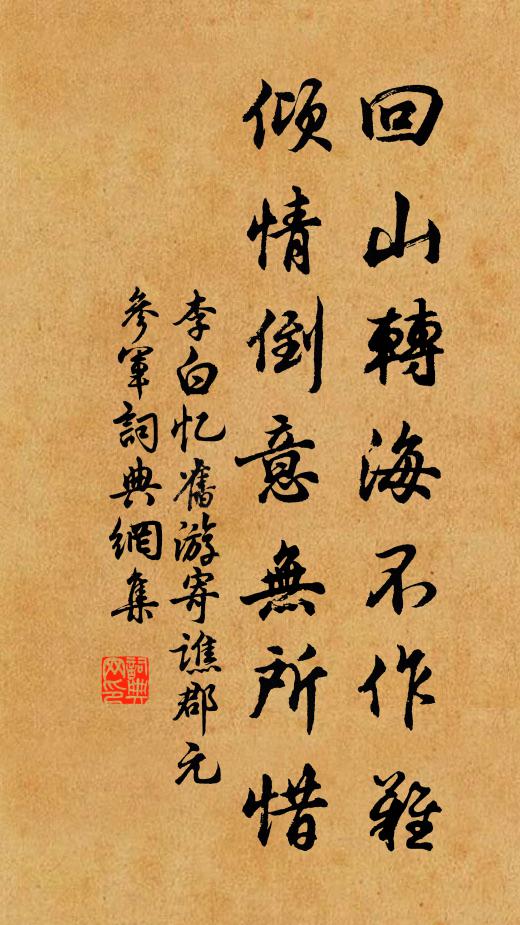 回山轉海不作難
傾情倒意無所惜
李白忆舊游寄譙郡元
參軍詞典網集
詞典
网印